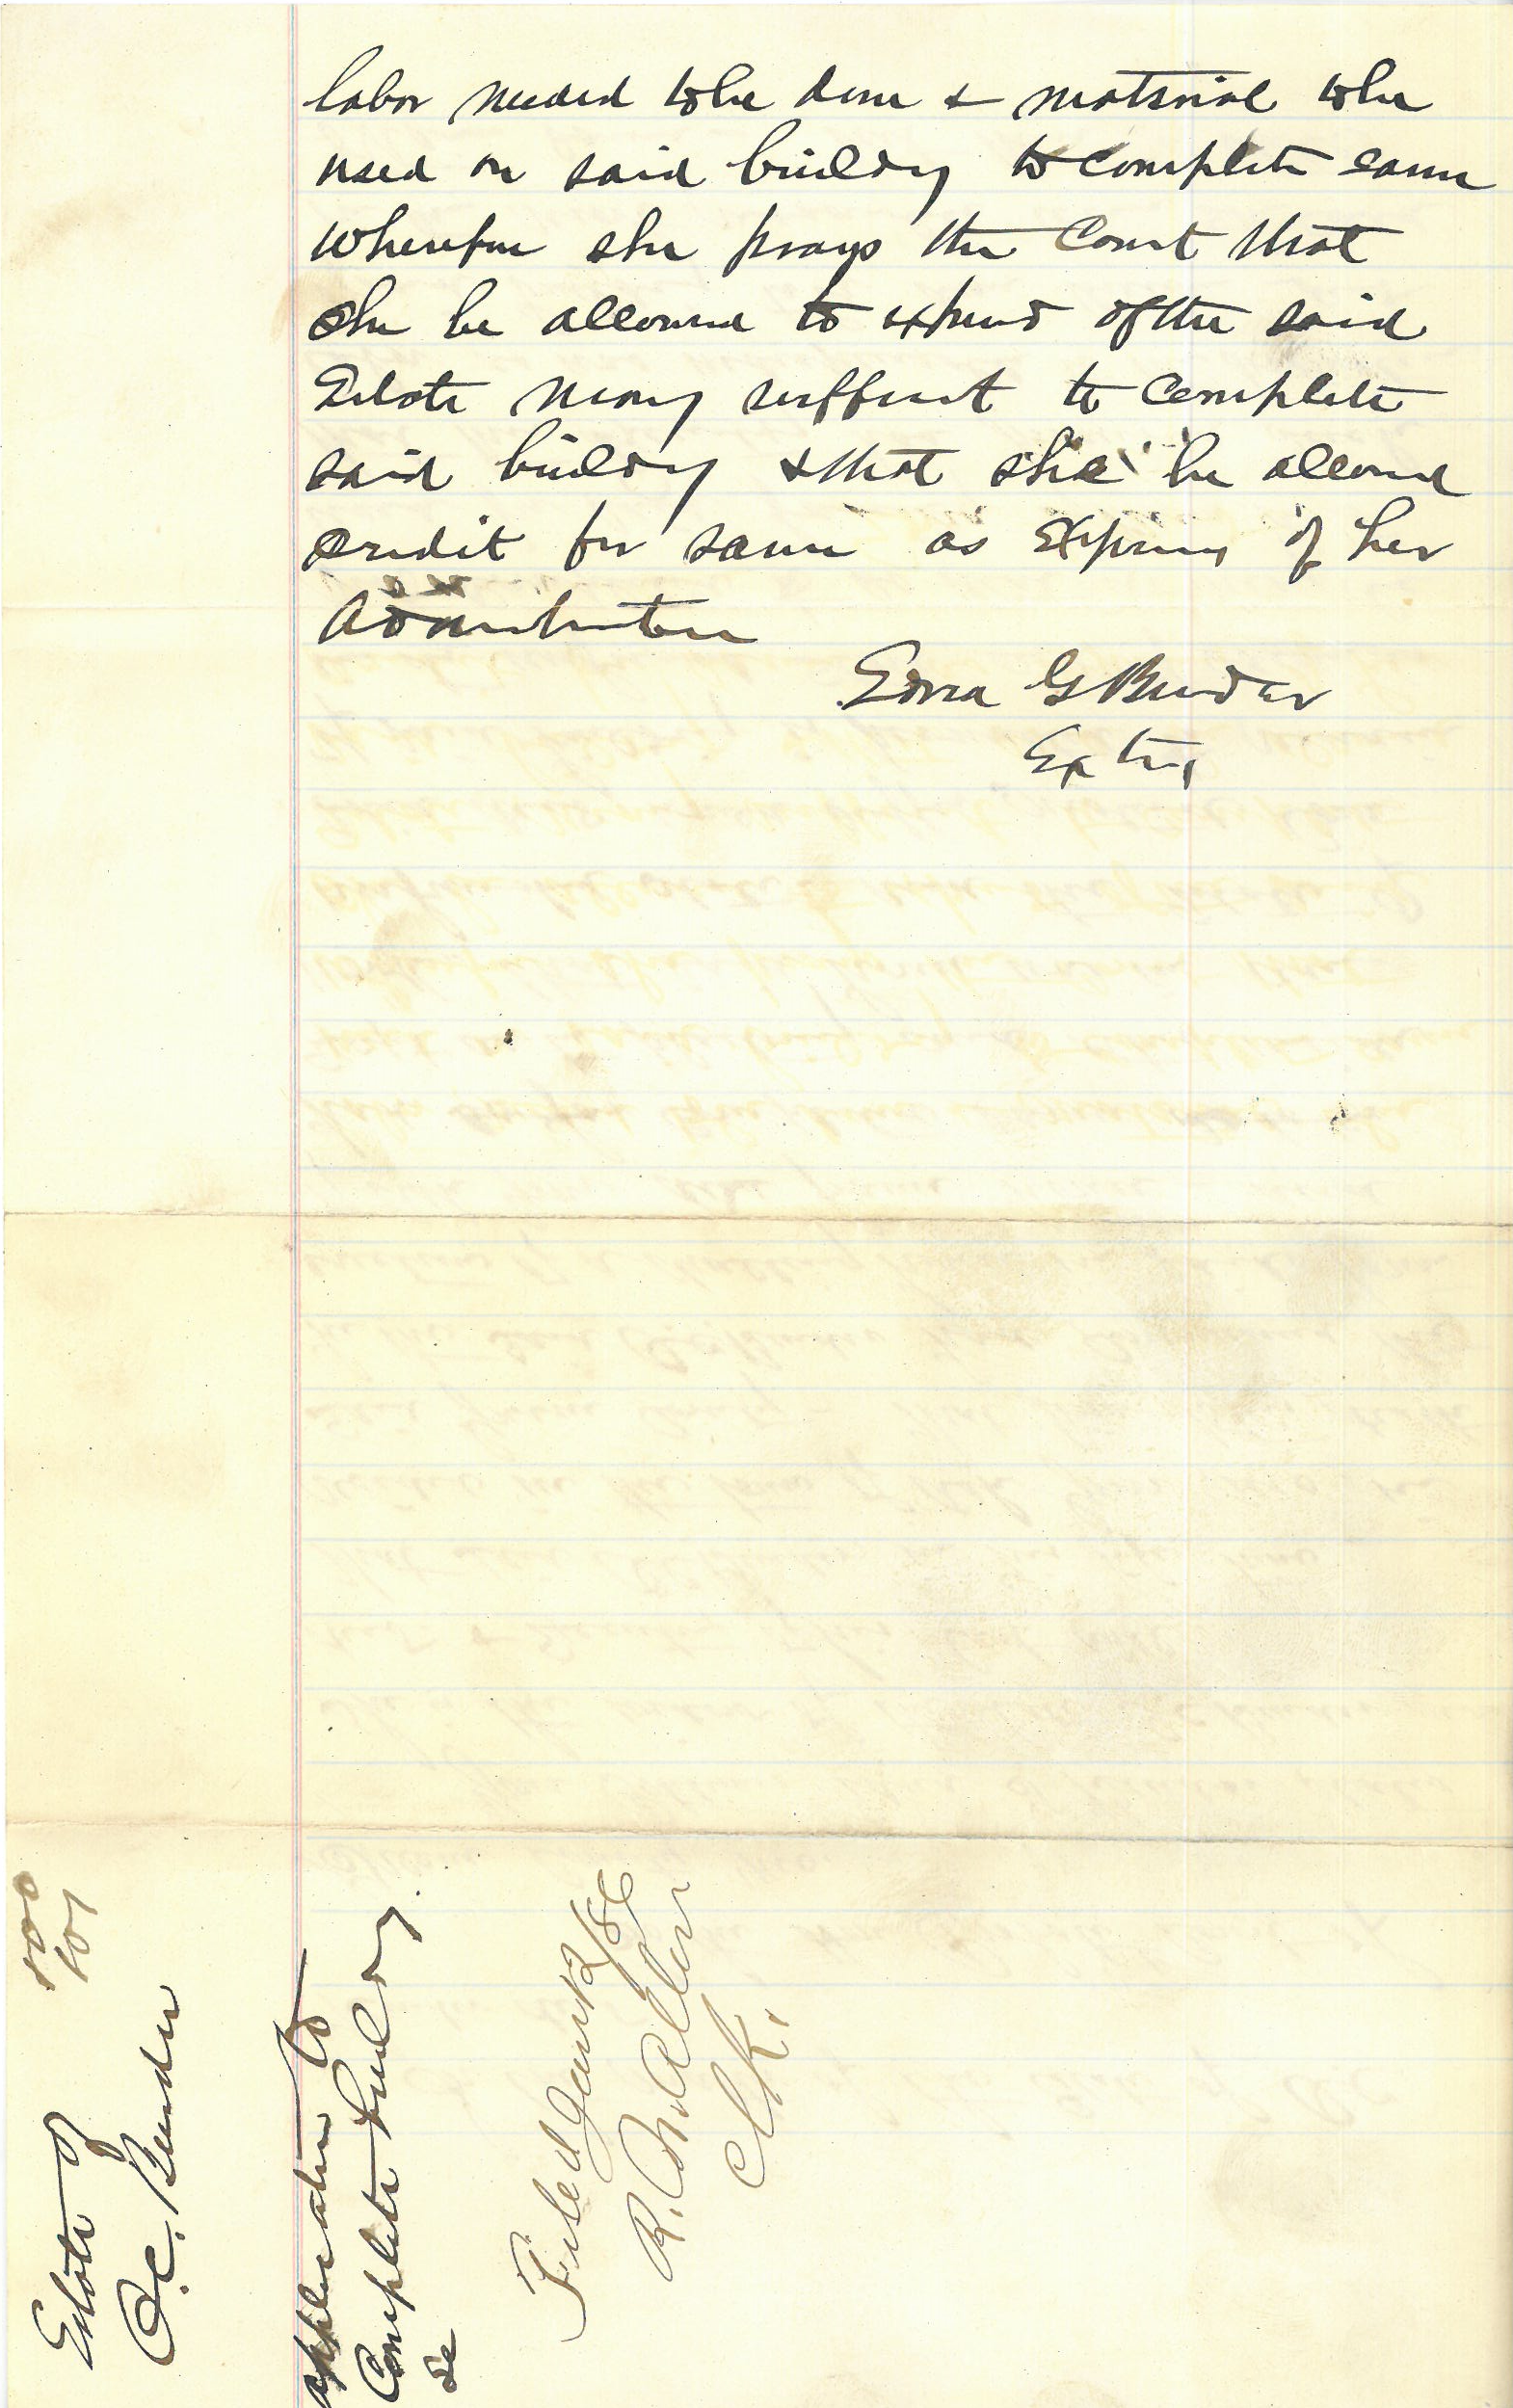 labor needed to be done & material to be
used on said building to complete same
Wherefore she prays the Court that
she be allowed to expend of the said
Estate money sufficent to complete
said building & that she be allowed
credit for same as expenses of her
Administration
Edna G Bender
Extrx
Estate of
O.C. Bender
application to
Complete building
&c
Filed Jan 12/86
R. M. Allen
Clk.